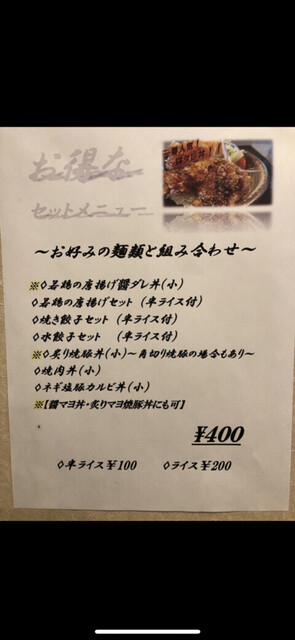 お得な
セットメニュー
一番人気！
～お好みの麺類と組み合わせ～
※◇若鶏の唐揚げ醤ダレ丼(小)
◇若鶏の唐揚げセット (半ライス付)
◇焼き餃子セット (半ライス付)
◇水餃子セット (半ライス付)
※◇炙り焼豚丼(小)～角切り焼豚の場合もあり～
◇焼肉丼(小)
◇ネギ塩豚カルビ丼(小)
※【醤マヨ丼・炙りマヨ焼豚丼にも可】
¥400
◇半ライス¥100 ◇ライス¥200